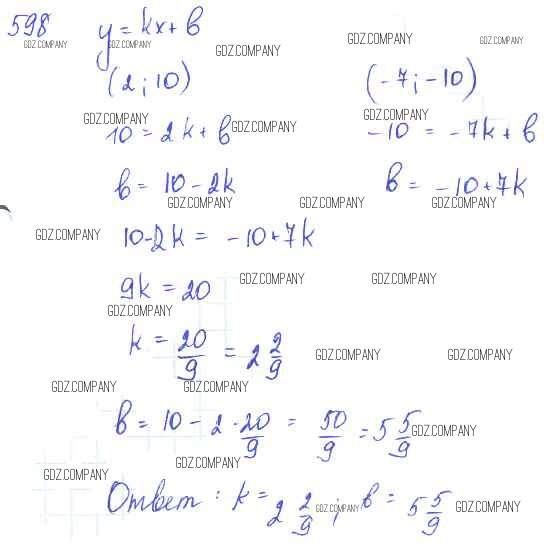 598 y = kx + b
GDZ.COMPANY GDZ.COMPANY GDZ.COMPANY GDZ.COMPANY GDZ.COMPANY
(2; 10) (-7; -10)
GDZ.COMPANY GDZ.COMPANY
10 = 2k + b GDZ.COMPANY -10 = -7k + b
b = 10 - 2k b = -10 + 7k
GDZ.COMPANY GDZ.COMPANY GDZ.COMPANY
GDZ.COMPANY 10 - 2k = -10 + 7k
9k = 20 GDZ.COMPANY GDZ.COMPANY
GDZ.COMPANY
k = 20/9 = 2 2/9 GDZ.COMPANY GDZ.COMPANY
GDZ.COMPANY GDZ.COMPANY
b = 10 - 2 · 20/9 = 50/9 = 5 5/9 GDZ.COMPANY
GDZ.COMPANY GDZ.COMPANY
Ответ: k = 2 2/9 GDZ.COMPANY; b = 5 5/9 GDZ.COMPANY